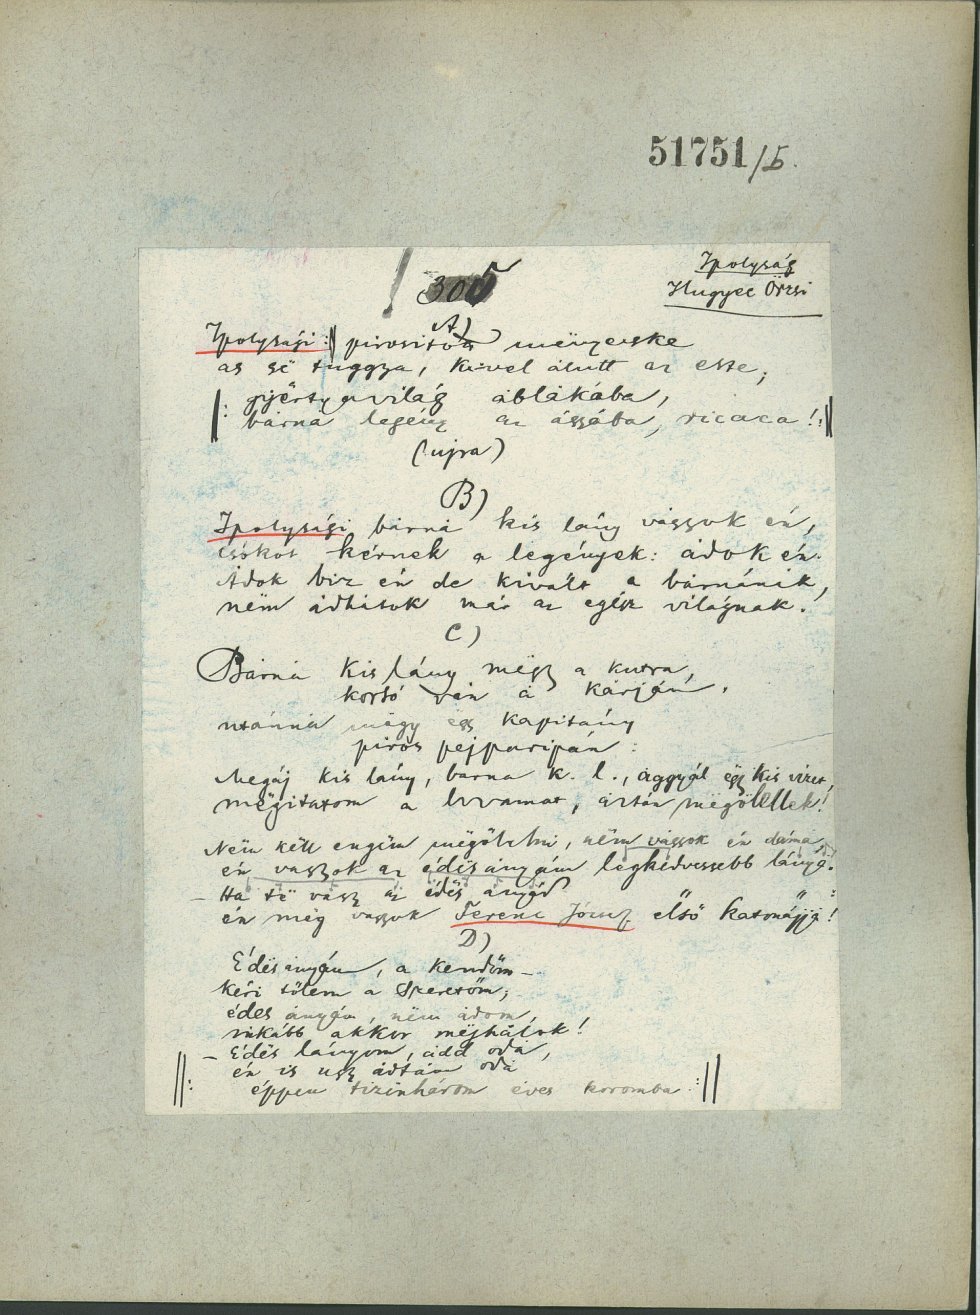 51751/5.
305
Ipolyság
Hugyec Örzsi
A)
Ipolysági :|| pirositós menyecske
as së tuggya, kivel álutt az este;
||: gyërtyavilág áblákába,
bárna legény az ágyába, ricaca! :||
(ujra)
B)
Ipolysági bárná kis lány vagyok én,
csókot kérnek a legények: ádok én.
Ádok biz én de kivált a bárnának,
nëm ádhatok már az egész világnak.
C)
Bárná kis lány mëgy a kutra,
korsó ván á kárján.
utánná mëgy egy kapitány
piros pejparipán:
Megáj kis lány, barna k. l., aggyál ëgy kis vizet,
mëgitatom a lovamat, áztán mëgöllellek!
Nëm këll engëm mëgölelni, nëm vagyok én dáma,
én vagyok az édësanyám legkedvesebb lányá.
– Ha të vagy az édës anyád
én mëg vagyok Ferenc József első katonájjá!
D)
Édësanyám, a kendőm –
kéri tőlem a szeretőm;
édes ányám, nëm ádom,
inkább akkor mëjhálok!
– Edës lányom, add odá,
én is ugy ádtám odá
||: éppen tizënhárom éves koromba :||